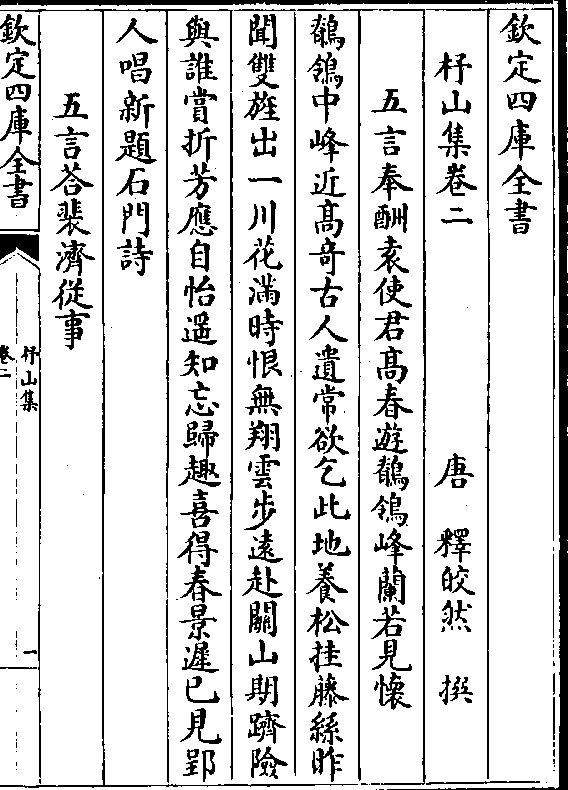 欽定四庫全書
杼山集卷二　　　　　唐　釋皎然　撰
五言奉酬袁使君髙春遊鶺鴒峰蘭若見懷
鶺鴒中峰近髙竒古人遺常欲乞此地養松挂藤絲昨
聞雙旌出一川花滿時恨無翔雲步遠赴闗山期躋險
與誰賞折芳應自怡遥知忘歸趣喜得春景遲已見郢
人唱新題石門詩
五言荅裴濟從事
欽定四庫全書
杼山集
卷二
一